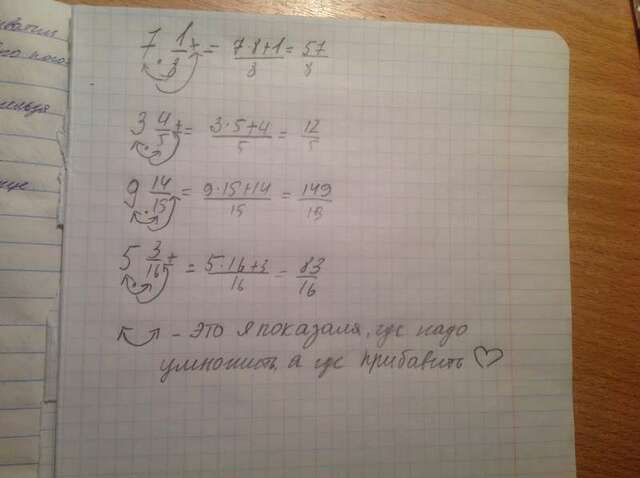 7 1/8 + = 7·8+1/8 = 57/8
3 4/5 + = 3·5+4/5 = 12/5
9 14/15 = 9·15+14/15 = 149/15
5 3/16 + = 5·16+3/16 = 83/16
- это я показала, где надо
умножить, а где прибавить ♡